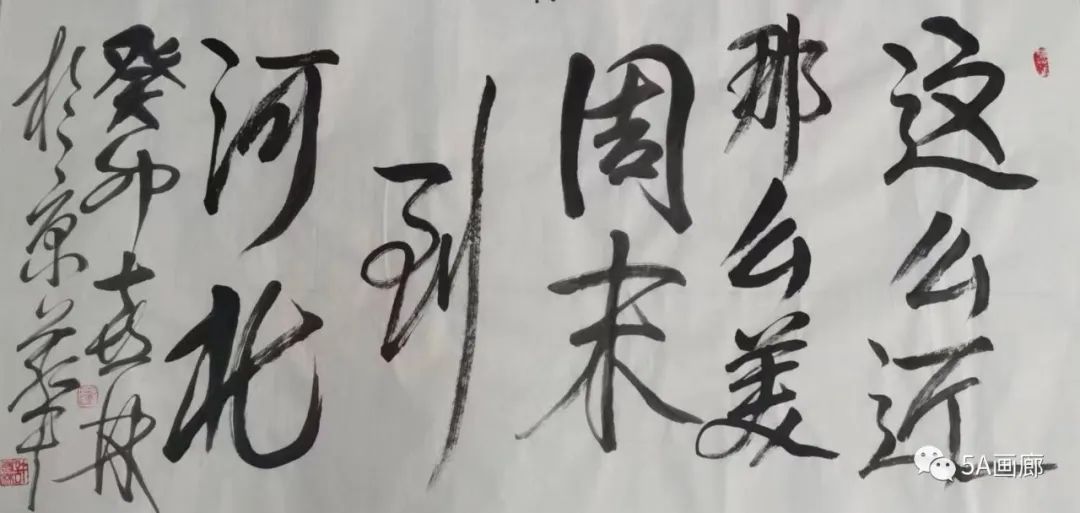 这么近
那么美
周末
到
河北
癸卯春月
于京华
5A画廊